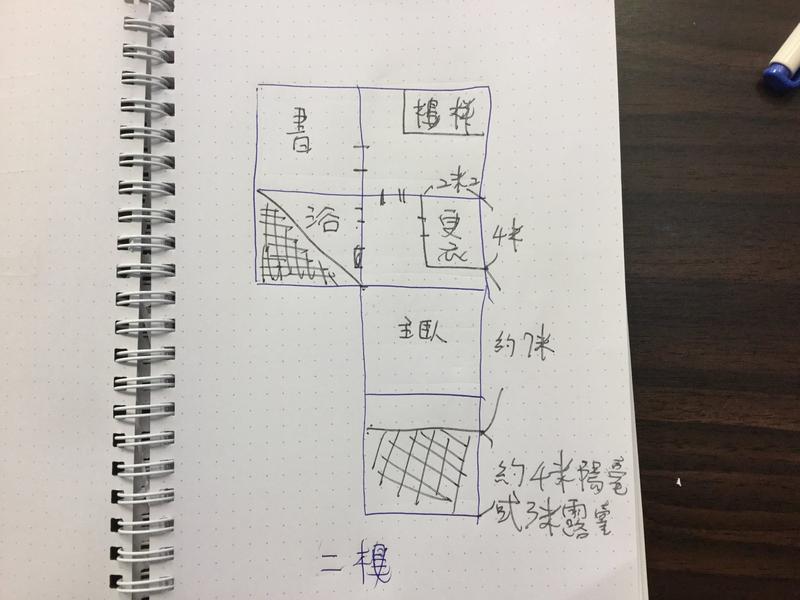 書
樓梯
2米2
浴
更衣
4米
主臥
約7米
約4米陽臺
或3米露臺
二樓